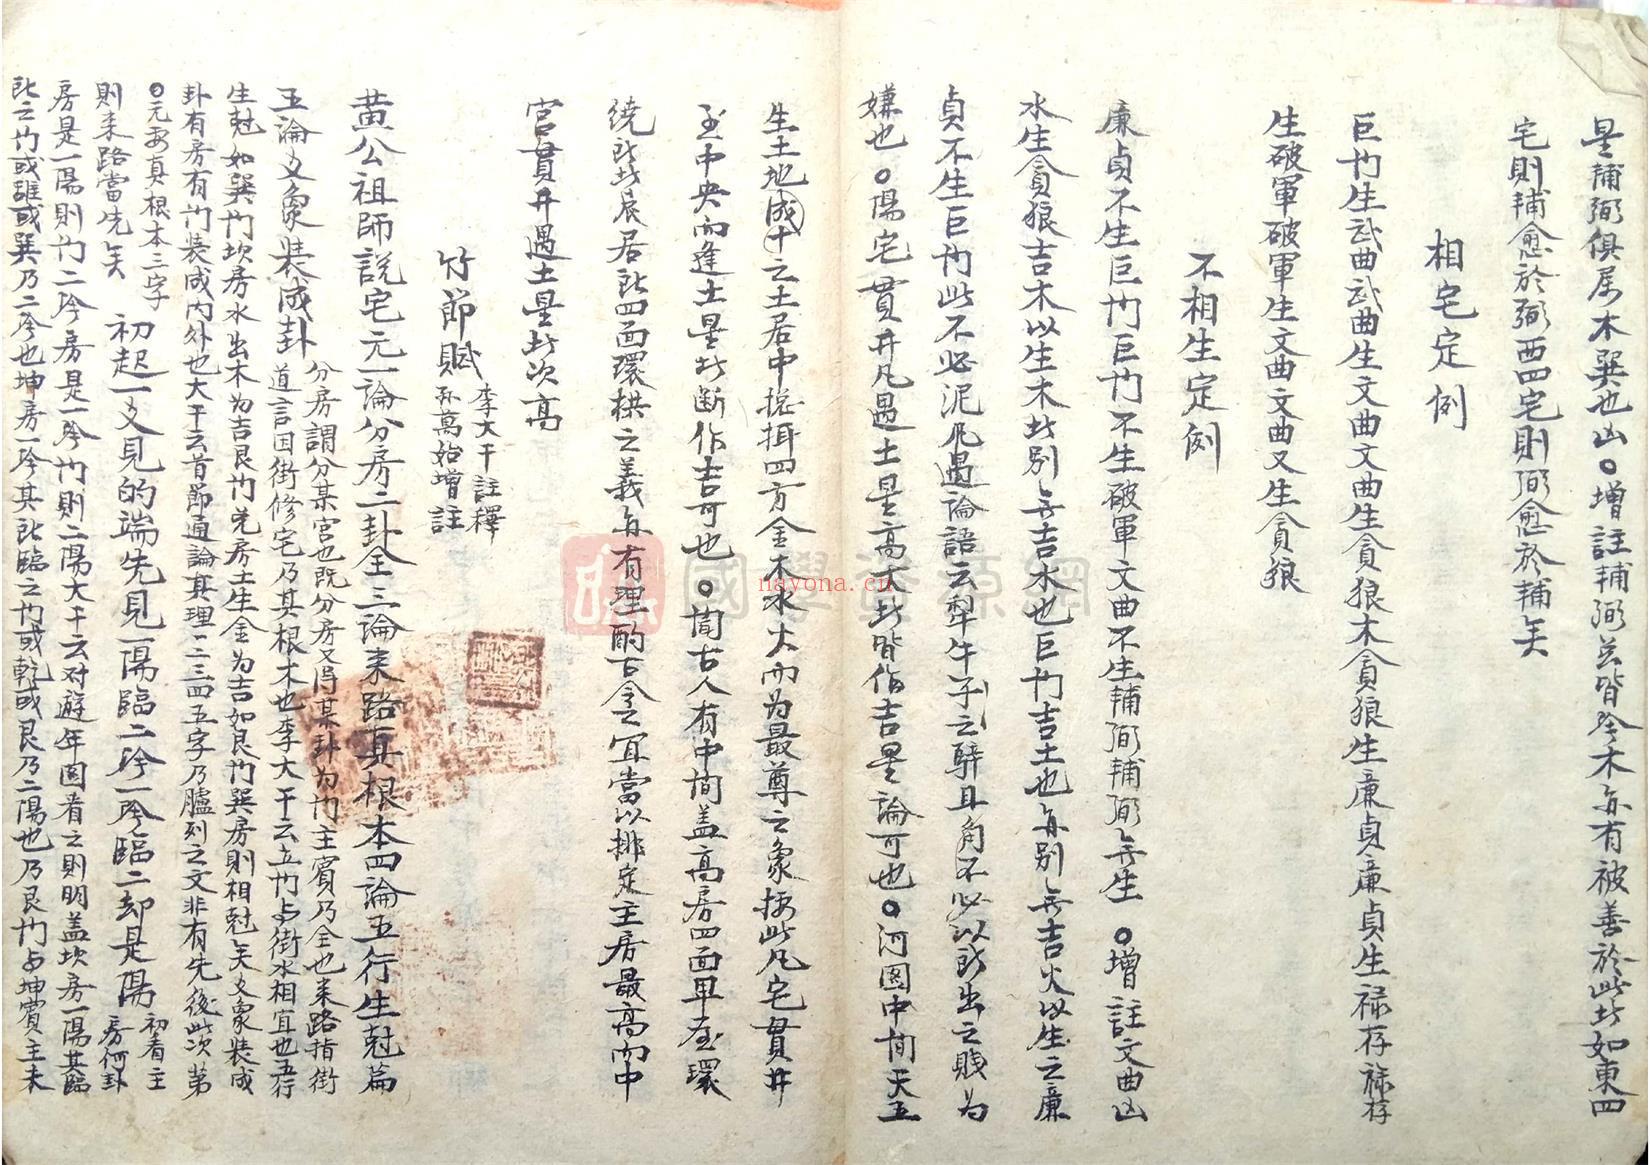 星輔弼俱属木巽也凶○增註輔弼若皆吟木亦有被善於此者如東四
宅則輔愈於弼西四宅則弼愈於輔矣
相宅定例
巨门生武曲武曲生文曲文曲生貪狼木貪狼生廉貞廉貞生禄存禄存
生破軍破軍生文曲文曲又生貪狼
不相生定例
廉貞不生巨门巨门不生破軍文曲不生輔弼輔弼無生○增註文曲凶
水生貪狼吉木以生木者別無吉水也巨门吉土也亦別無吉火以生之廉
貞不生巨门此不必泥凡過論語云犁牛子之騂且角不必以所出之賤为
嫌也○陽宅貫井凡遇土星高者皆作吉星論可也○河圖中间天五
生土地成十之土居中捴摂四方金木水火而为最尊之象按此凡宅貫井
至中央而逢土星者断作吉可也○闻古人有中间盖高房四面卑屋環
繞所北辰居所四面環栱之義亦有理酌古今宜當以排定主房最高而中
宫貫井遇土星者次高
竹節賦 李大干註釋
孙萬始增註
黄公祖師說宅元一論分房二卦全三論来路真根本四論五行生尅篇
五論爻象裝成卦
分房謂分某宫也既分房又得某卦为门主賓乃全也来路指街
道言因街修宅乃其根本也李大干云立门占街水相宜也五行
生尅如巽门坎房水出木为吉艮门兑房土生金为吉如艮门巽房則相尅矣爻象裝成
卦有房有门裝成内外也大干云首節通論其理一二三四五字乃臚列之文非有先後此次第
○元安真根本三字
則来路當先矣
初起一爻見的端先見一陽臨二吟一吟臨二却是陽
初看主
房何卦
房是一陽則门二吟房是一吟门則二陽大干云对遊年图看之則明盖坎房一陽其臨
此之门或離或巽乃二吟也坤房一吟其所臨之门或乾或艮乃二陽也乃艮门占坤賓主未
國學資源網
nayona.cn